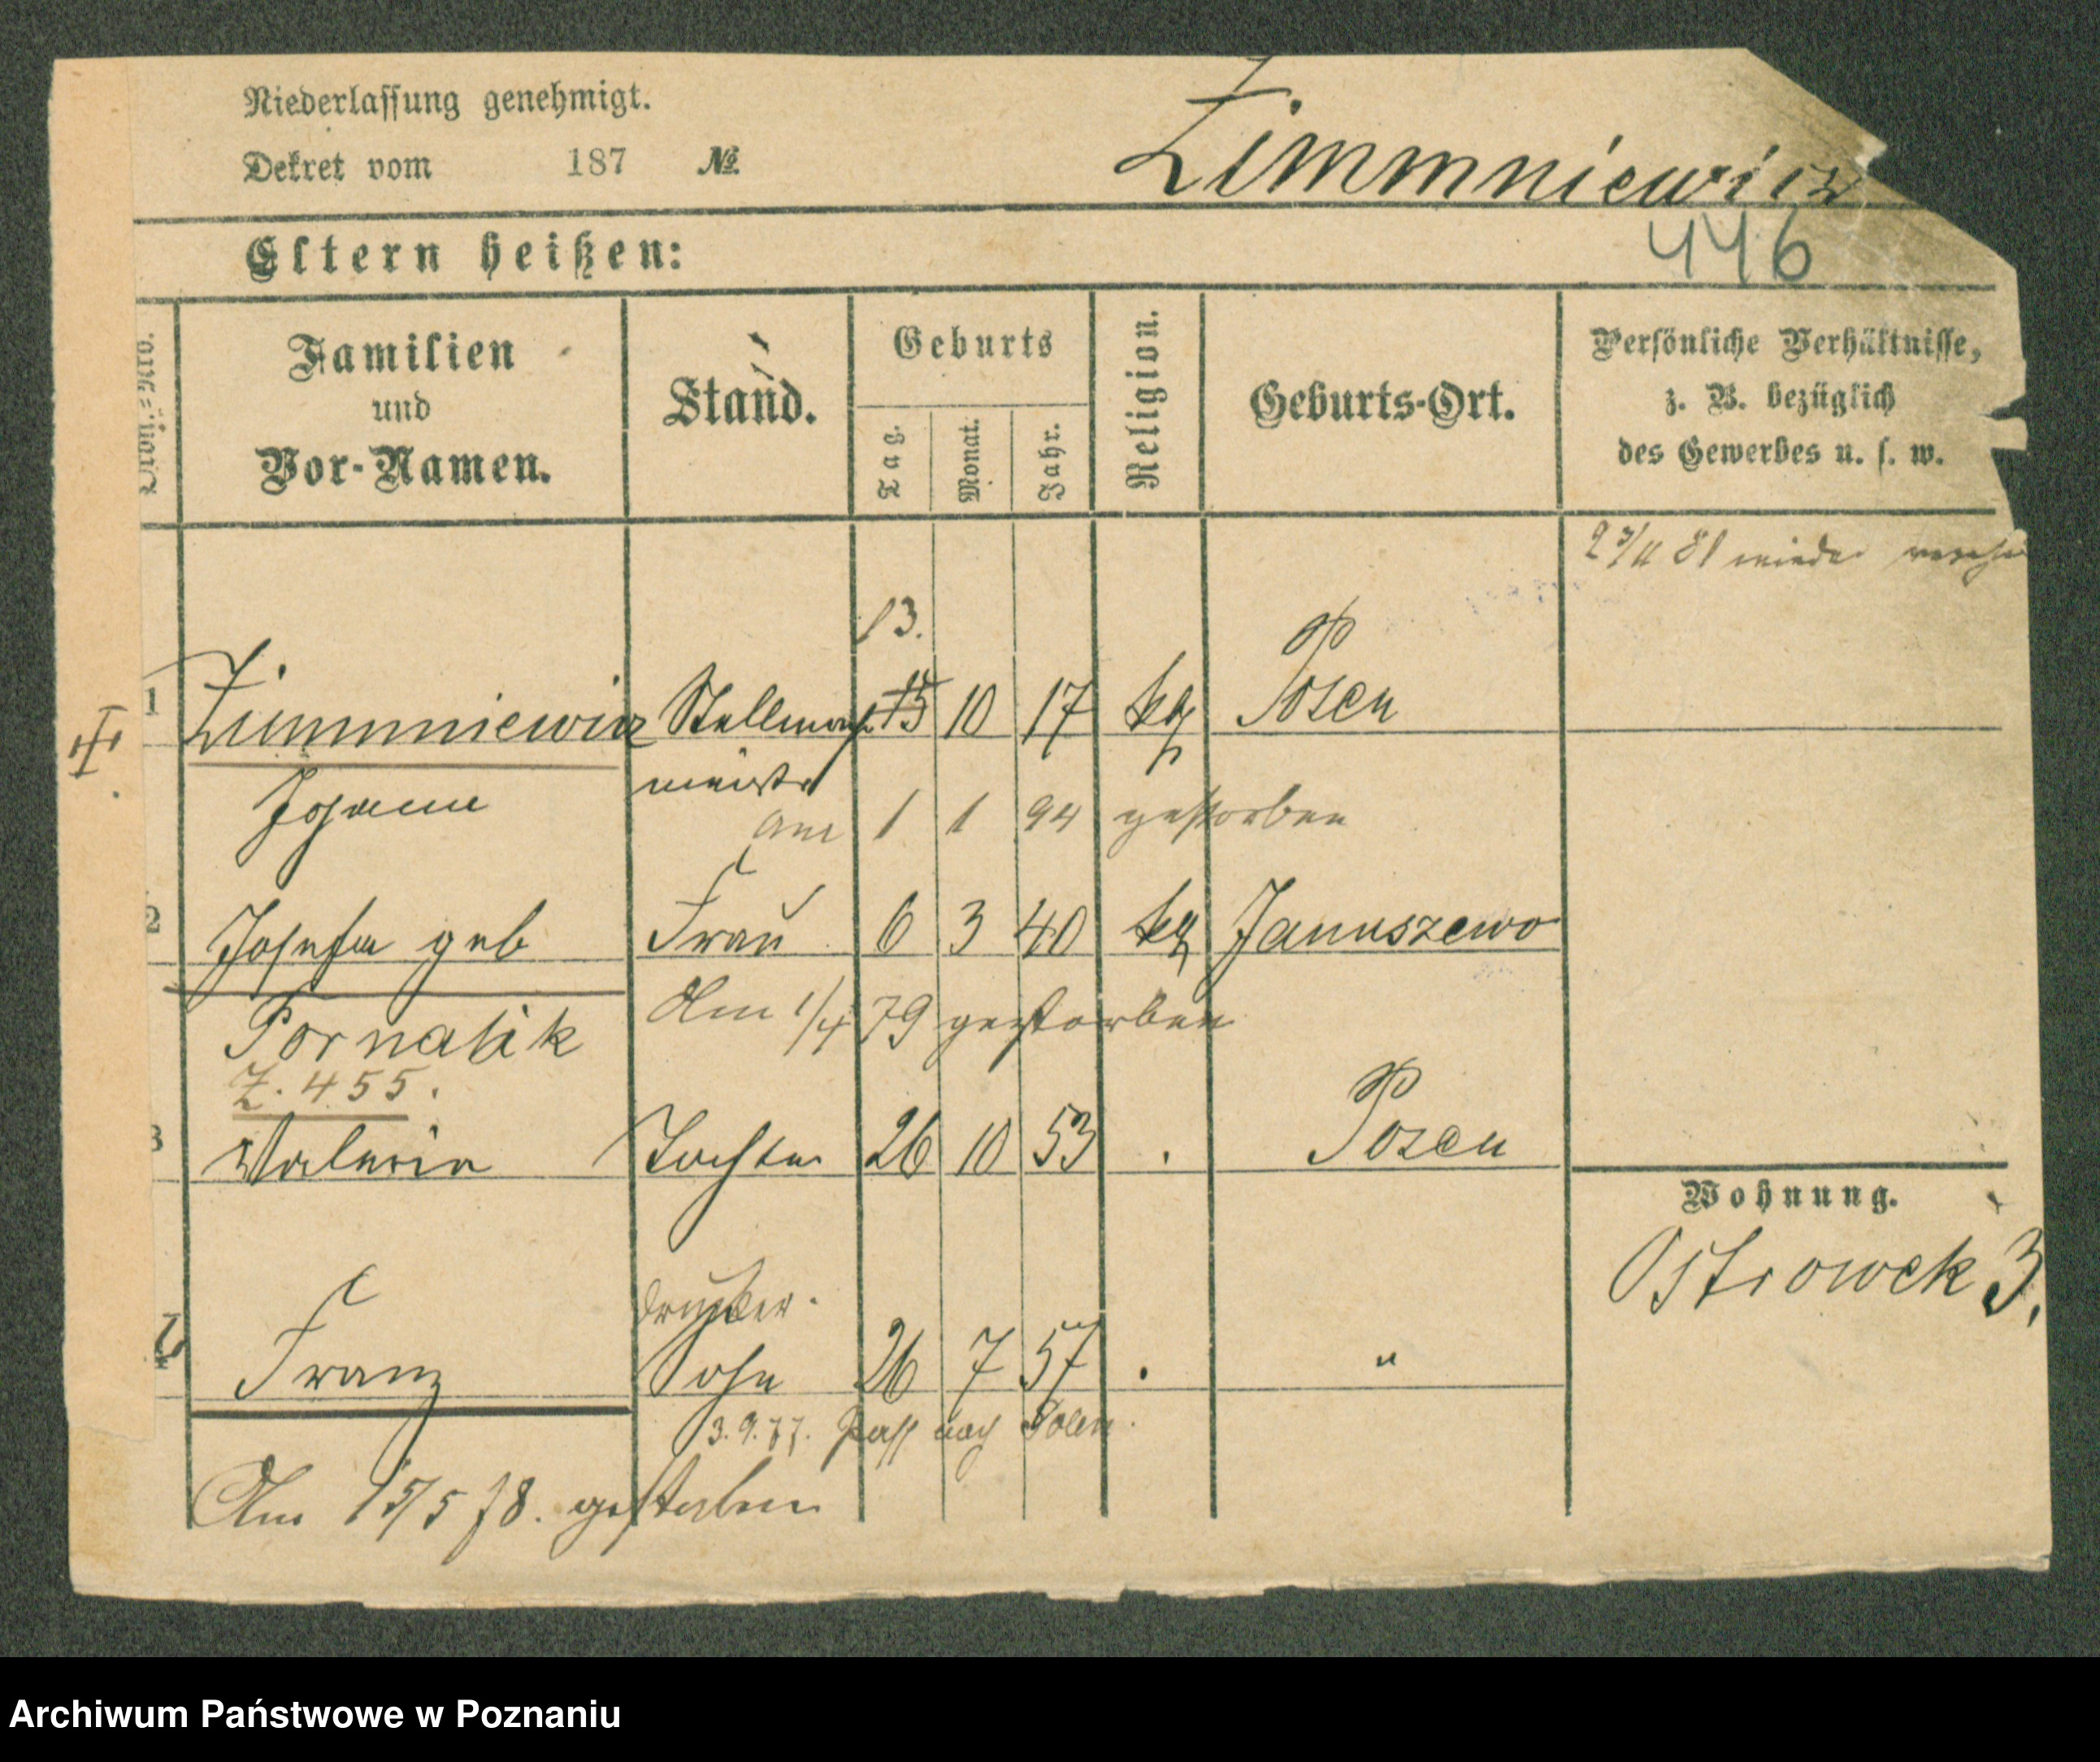 Niederlassung genehmigt.
Dekret vom 187 №
Zimmniewicz
446
Eltern heißen:
Familien und Vor-Namen.
Stand.
Geburts
Tag.
Monat.
Jahr.
Religion.
Geburts-Ort.
Persönliche Verhältnisse,
z. B. bezüglich
des Gewerbes u. s. w.
2 3/11 81 wieder
13.
1 Zimmniewicz Stellmach 15 10 17 kg Posen
meister
am 1 1 94 gestorben
2 Josefa geb Frau 6 3 40 kg Januszewo
Am 1/4 79 gestorben
Z. 455.
3 Valeria Tochter 26 10 53 Posen
Wohnung.
Ostrowek 3.
Drucker.
Franz Sohn 26 7 57 "
3.9.77. Paß nach Polen.
Am 15/5 78. gestorben
Archiwum Państwowe w Poznaniu